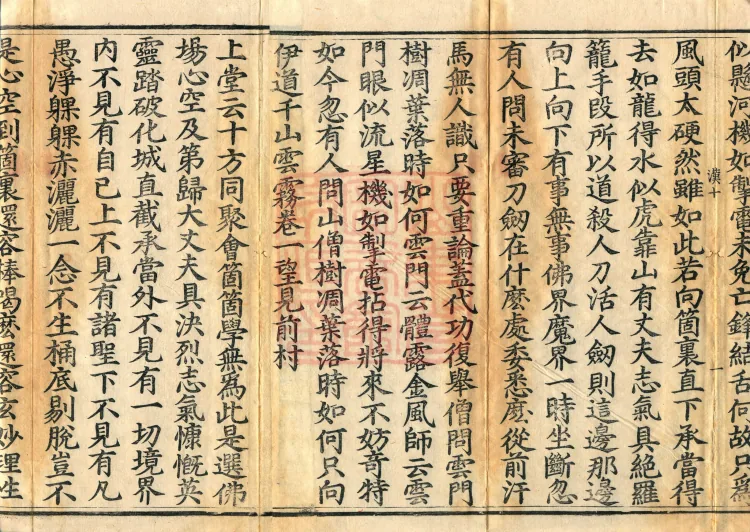 似懸河機如掣電未免亡鋒結舌何故只爲
風頭太硬然雖如此若向箇裏直下承當得
去如龍得水似虎靠山有丈夫志氣具絕羅
籠手段所以道殺人刀活人劒則這邊那邊
向上向下有事無事佛界魔界一時坐斷忽
有人問未審刀劒在什麼處委悉麼從前汗
馬無人識只要重論蓋代功復舉僧問雲門
樹凋葉落時如何雲門云體露金風師云雲
門眼似流星機如掣電拈得將來不妨奇特
如今忽有人問山僧樹凋葉落時如何只向
伊道千山雲霧卷一望見前村
上堂云十方同聚會箇箇學無爲此是選佛
場心空及第歸大丈夫具決烈志氣慷慨英
靈踏破化城直截承當外不見有一切境界
內不見有自己上不見有諸聖下不見有凡
愚淨躶躶赤灑灑一念不生桶底剔脫豈不
是心空到箇裏還容棒喝麼還容玄妙理性
漠十
一